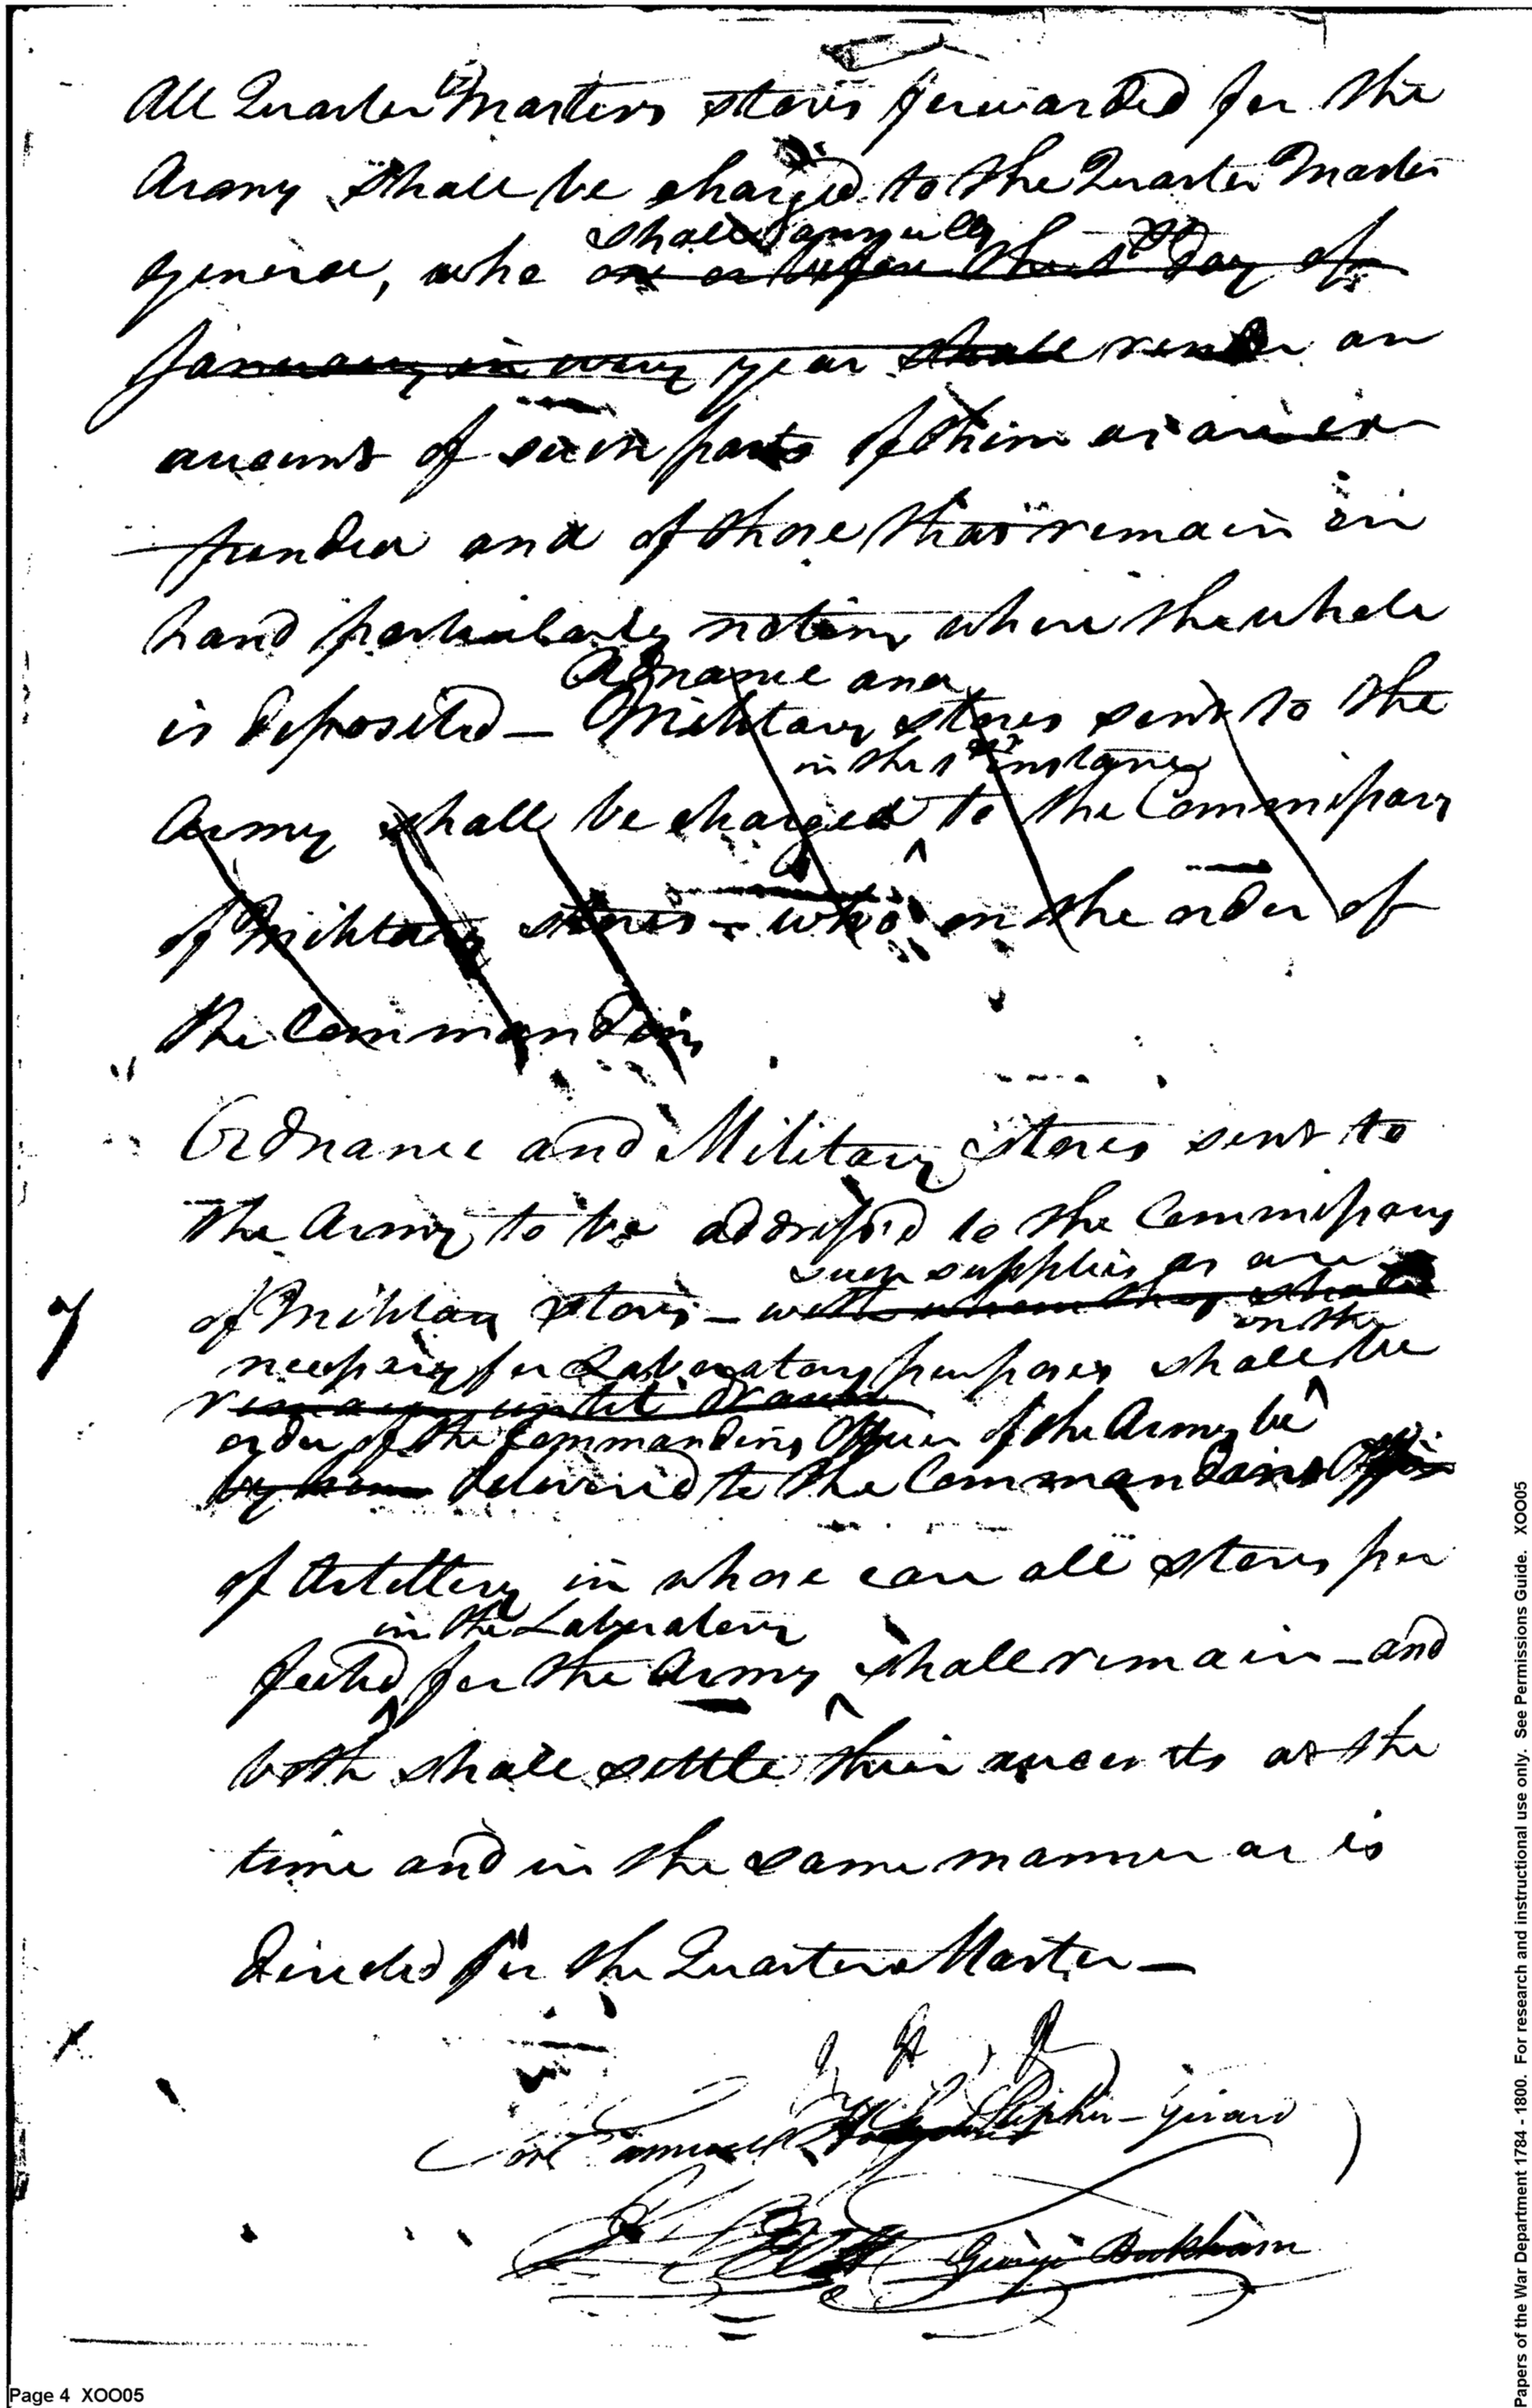 All Quarter Masters stores forwarded for the
Army shall be charged to the Quarter Master
shall annually
general, who on or before the 1st Day of
January in every year shall render an
account of such parts of them as are ex-
pended and of those that remain in
hand particularly noting where the whole
Ordnance and
is deposited — Military stores sent to the
in the 1st instance
Army shall be charged to the Commissary
of Military stores — who on the order of
the Commanding
Ordnance and Military stores sent to
the Army to be addressed to the Commissary
such supplies as are
of Military stores — with whom they shall
on the
necessary for Laboratory purposes shall be
remain until drawn
order of the Commanding Officer of the Army be
by him delivered to the Commanding Officer
of Artillery in whose care all stores per
in the Laboratory
fected for the Army shall remain — and
both shall settle their accounts at the
time and in the same manner as is
directed for the Quarter Master —
Samuel Hodgdon Stephen Girard
George Bickham
Page 4 XOO05
Papers of the War Department 1784 - 1800. For research and instructional use only. See Permissions Guide. XOO05